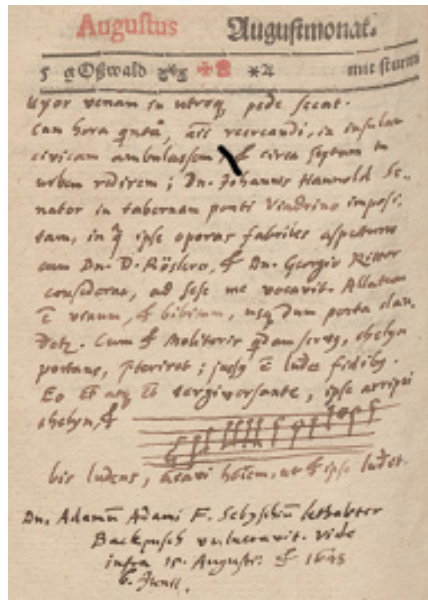 Augustus Augustmonat.
5 g Oßwald mit sturm
Uxor venam in utroq pede secat.
Cum hora quinta, animi recreandi, in insulam
civicam ambulassem, & circa septimam in
urbem redirem; Dn. Johannes Hannold Se-
nator in tabernam ponti Viadrino imposi-
tam, in q ipse operas fabriles aspecturus
cum Dn. D. Röslero, & Dn. Georgio Ritter
consederat, ad sese me vocavit. Allatum
ē vinum, & bibitum, usq dum porta clau-
Cum & Molitoris qdam servus, chelyn
portans, pteriret; jussus ē ludere fidibus.
Eo tergiversante, ipse arripui
chelyn, &
bis ludens, ut & ipse luderet.
Dn. Adamum Adami F. Sebyschium lethaliter
Backpusch vulneravit. vide
infra 15. Augusti. & 1648
6. Junii.